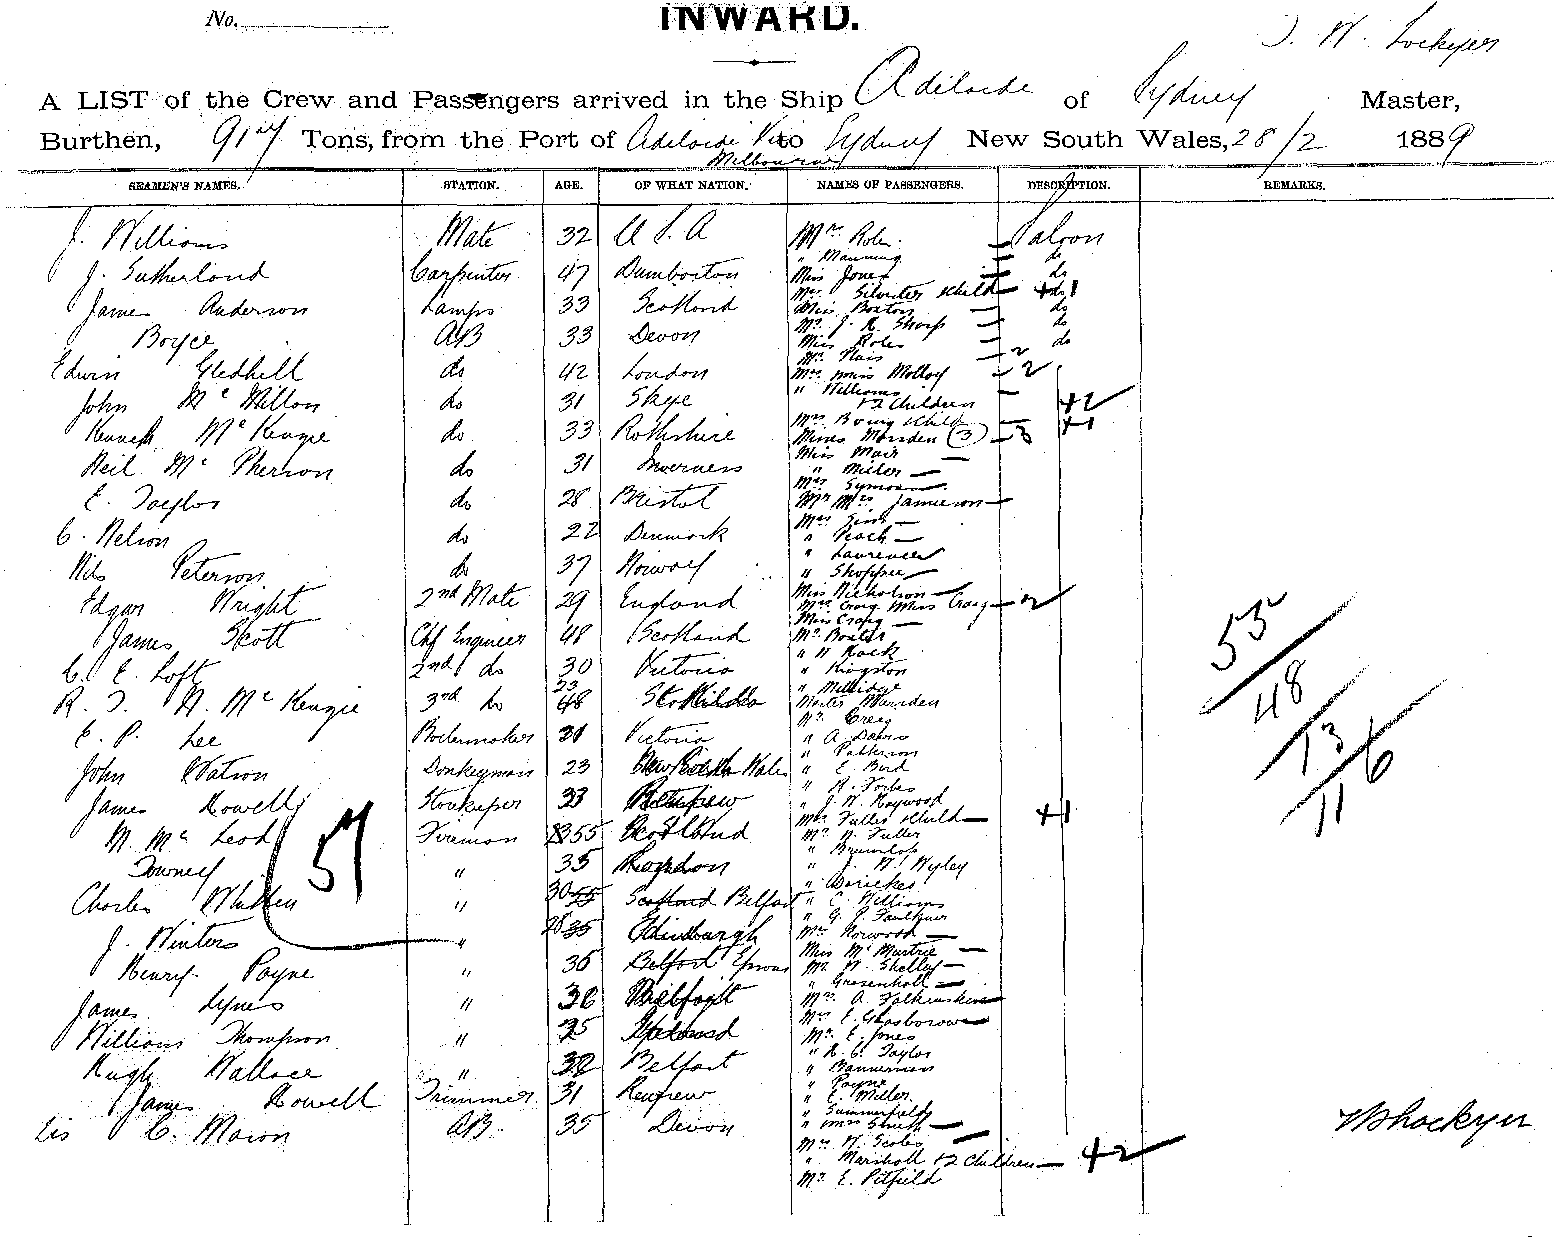 No.
INWARD.
J. W. Lockyer
A LIST of the Crew and Passengers arrived in the Ship Adelaide of Sydney Master,
Burthen, 917 Tons, from the Port of Adelaide Via to Sydney New South Wales, 28/2 1889
Melbourne
SEAMEN'S NAMES. STATION. AGE. OF WHAT NATION. NAMES OF PASSENGERS. DESCRIPTION. REMARKS.
J. Williams Mate 32 U S A
J. Sutherland Carpenter 47 Dumbarton
James Anderson Lamps 33 Scotland
Boyce AB 33 Devon
Edwin Gledhill do 42 London
John McMillan do 31 Skye
Kenneth McKenzie do 33 Rothshire
Neil McPherson do 31 Inverness
E. Taylor do 28 Bristol
C. Nelson do 22 Denmark
Nils Peterson do 37 Norway
Edgar Wright 2nd Mate 29 England
James Scott Chf Engineer 48 Scotland
C. E. Loft 2nd do 30 Victoria
R. J. N. McKenzie 3rd do 23
E. P. Lee Boilermaker 21 Victoria
John Watson Donkeyman 23 New South Wales
James Howell Storekeeper 33 Renfrew
N. McLeod Fireman 55 Scotland
Downey " 35
Charles " 30 Belfast
J. Winters " 28 Edinburgh
Henry Payne " 36 Epsom
James Lynes " 36 Belfast
William Thompson " 25
Hugh Wallace " 32 Belfast
James Howell Trimmer 31 Renfrew
C. Mason AB 35 Devon
57
Saloon
" Manning do
Miss Jones do
Mrs Silvester & Child +1
Miss Boston do
Mr J. R. Sharp do
Miss Roles do
Mrs & Miss Molloy 2
" Williams
+ 2 Children +2
Mrs & Child +1
Misses Marsden (3) 3
Miss Mair
" Miller
Mrs Symon
Mr & Mrs Jamieson
Mrs Sims
" Peach
" Laurence
" Shopper
Miss Nicholson
Mrs Craig & Miss Craig 2
Miss Craig
Mr Baxter
" Kingston
" Millidge
Master Marsden
Mr Craig
" A Davis
" Patterson
" E. Bird
" R. Forbes
" J. W. Haywood
Mrs Fuller & Child +1
Mr N. Fuller
" J. W. Wyley
" C. Williams
" G. P. Faulkner
Mrs Norwood
Miss McMurtrie
Mr W. Shelley
Mr E. Jones
" R. C. Taylor
" Bannerman
" Payne
" E. Miller
" Summerfield
Mrs N. Scoles
" Marshall + 2 Children +2
Mr E. Pitfield
55
48
13
116